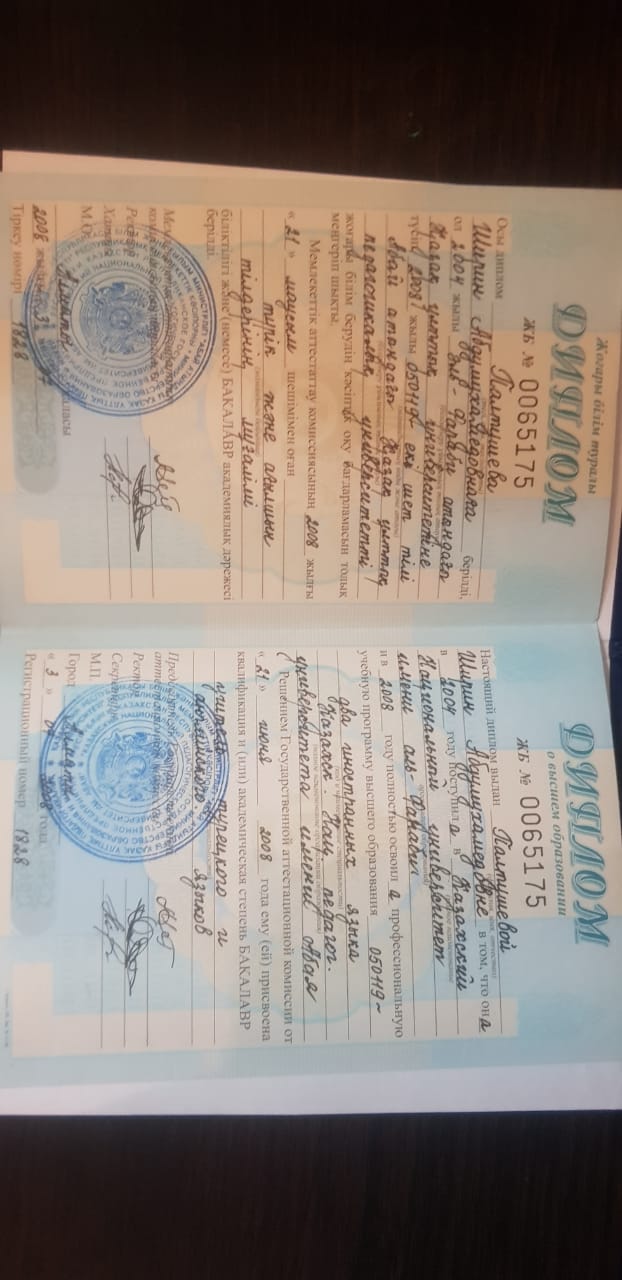 Жоғары білім туралы
ДИПЛОМ
ЖБ № 0065175
Осы диплом Палтушева
Ширин Абдулмухамедовнаға берілді,
ол 2004 жылы әль-Фараби атындағы
Қазақ ұлттық университетіне
түсіп, 2008 жылы 050119- екі шет тілі
Абай атындағы Қазақ ұлттық
педагогикалық университетті
жоғары білім берудің кәсіптік оқу бағдарламасын толық
меңгеріп шықты.
Мемлекеттік аттестаттау комиссиясының 2008 жылғы
« 21 » маусым шешімімен оған
түрік және ағылшын
тілдерінің мұғалімі
біліктілігі және (немесе) БАКАЛАВР академиялық дәрежесі
берілді.
М.О.
Алматы қаласы
2008 жылғы « 3 » 07
Тіркеу нөмірі 1828
ДИПЛОМ
о высшем образовании
ЖБ № 0065175
Настоящий диплом выдан Палтушевой
Ширин Абдулмухамедовне в том, что она
в 2004 году поступила в Казахский
Национальный университет
имени аль-Фараби
и в 2008 году полностью освоила профессиональную
учебную программу высшего образования 050119-
два иностранных языка
Казахск. Нац. педагог.
университета имени Абая
Решением Государственной аттестационной комиссии от
« 21 » июня 2008 года ему (ей) присвоена
квалификация и (или) академическая степень БАКАЛАВР
учитель турецкого и
английского языков
М.П.
Город Алматы
« 3 » 07 2008 года
Регистрационный номер 1828